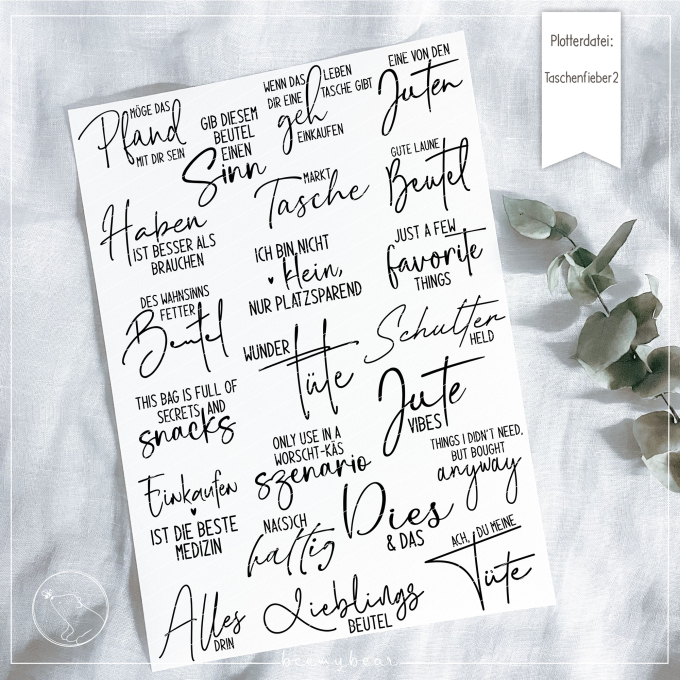 Plotterdatei:
Taschenfieber2
MÖGE DAS
Pfand
MIT DIR SEIN
GIB DIESEM
BEUTEL
EINEN
Sinn
WENN DAS LEBEN
DIR EINE TASCHE GIBT
geh
EINKAUFEN
EINE VON DEN
Juten
Haben
IST BESSER ALS
BRAUCHEN
MARKT
Tasche
GUTE LAUNE
Beutel
ICH BIN NICHT
klein,
NUR PLATZSPAREND
JUST A FEW
favorite
THINGS
DES WAHNSINNS
FETTER
Beutel
WUNDER
tüte
Schulter
HELD
THIS BAG IS FULL OF
SECRETS AND
snacks
ONLY USE IN A
WORSCHT-KÄS
szenario
Jute
VIBES
THINGS I DIDN'T NEED,
BUT BOUGHT
anyway
Einkaufen
IST DIE BESTE
MEDIZIN
NA(S)CH
haltig
Dies
& DAS
ACH, DU MEINE
Tüte
Alles
DRIN
Lieblings
BEUTEL
beemybear